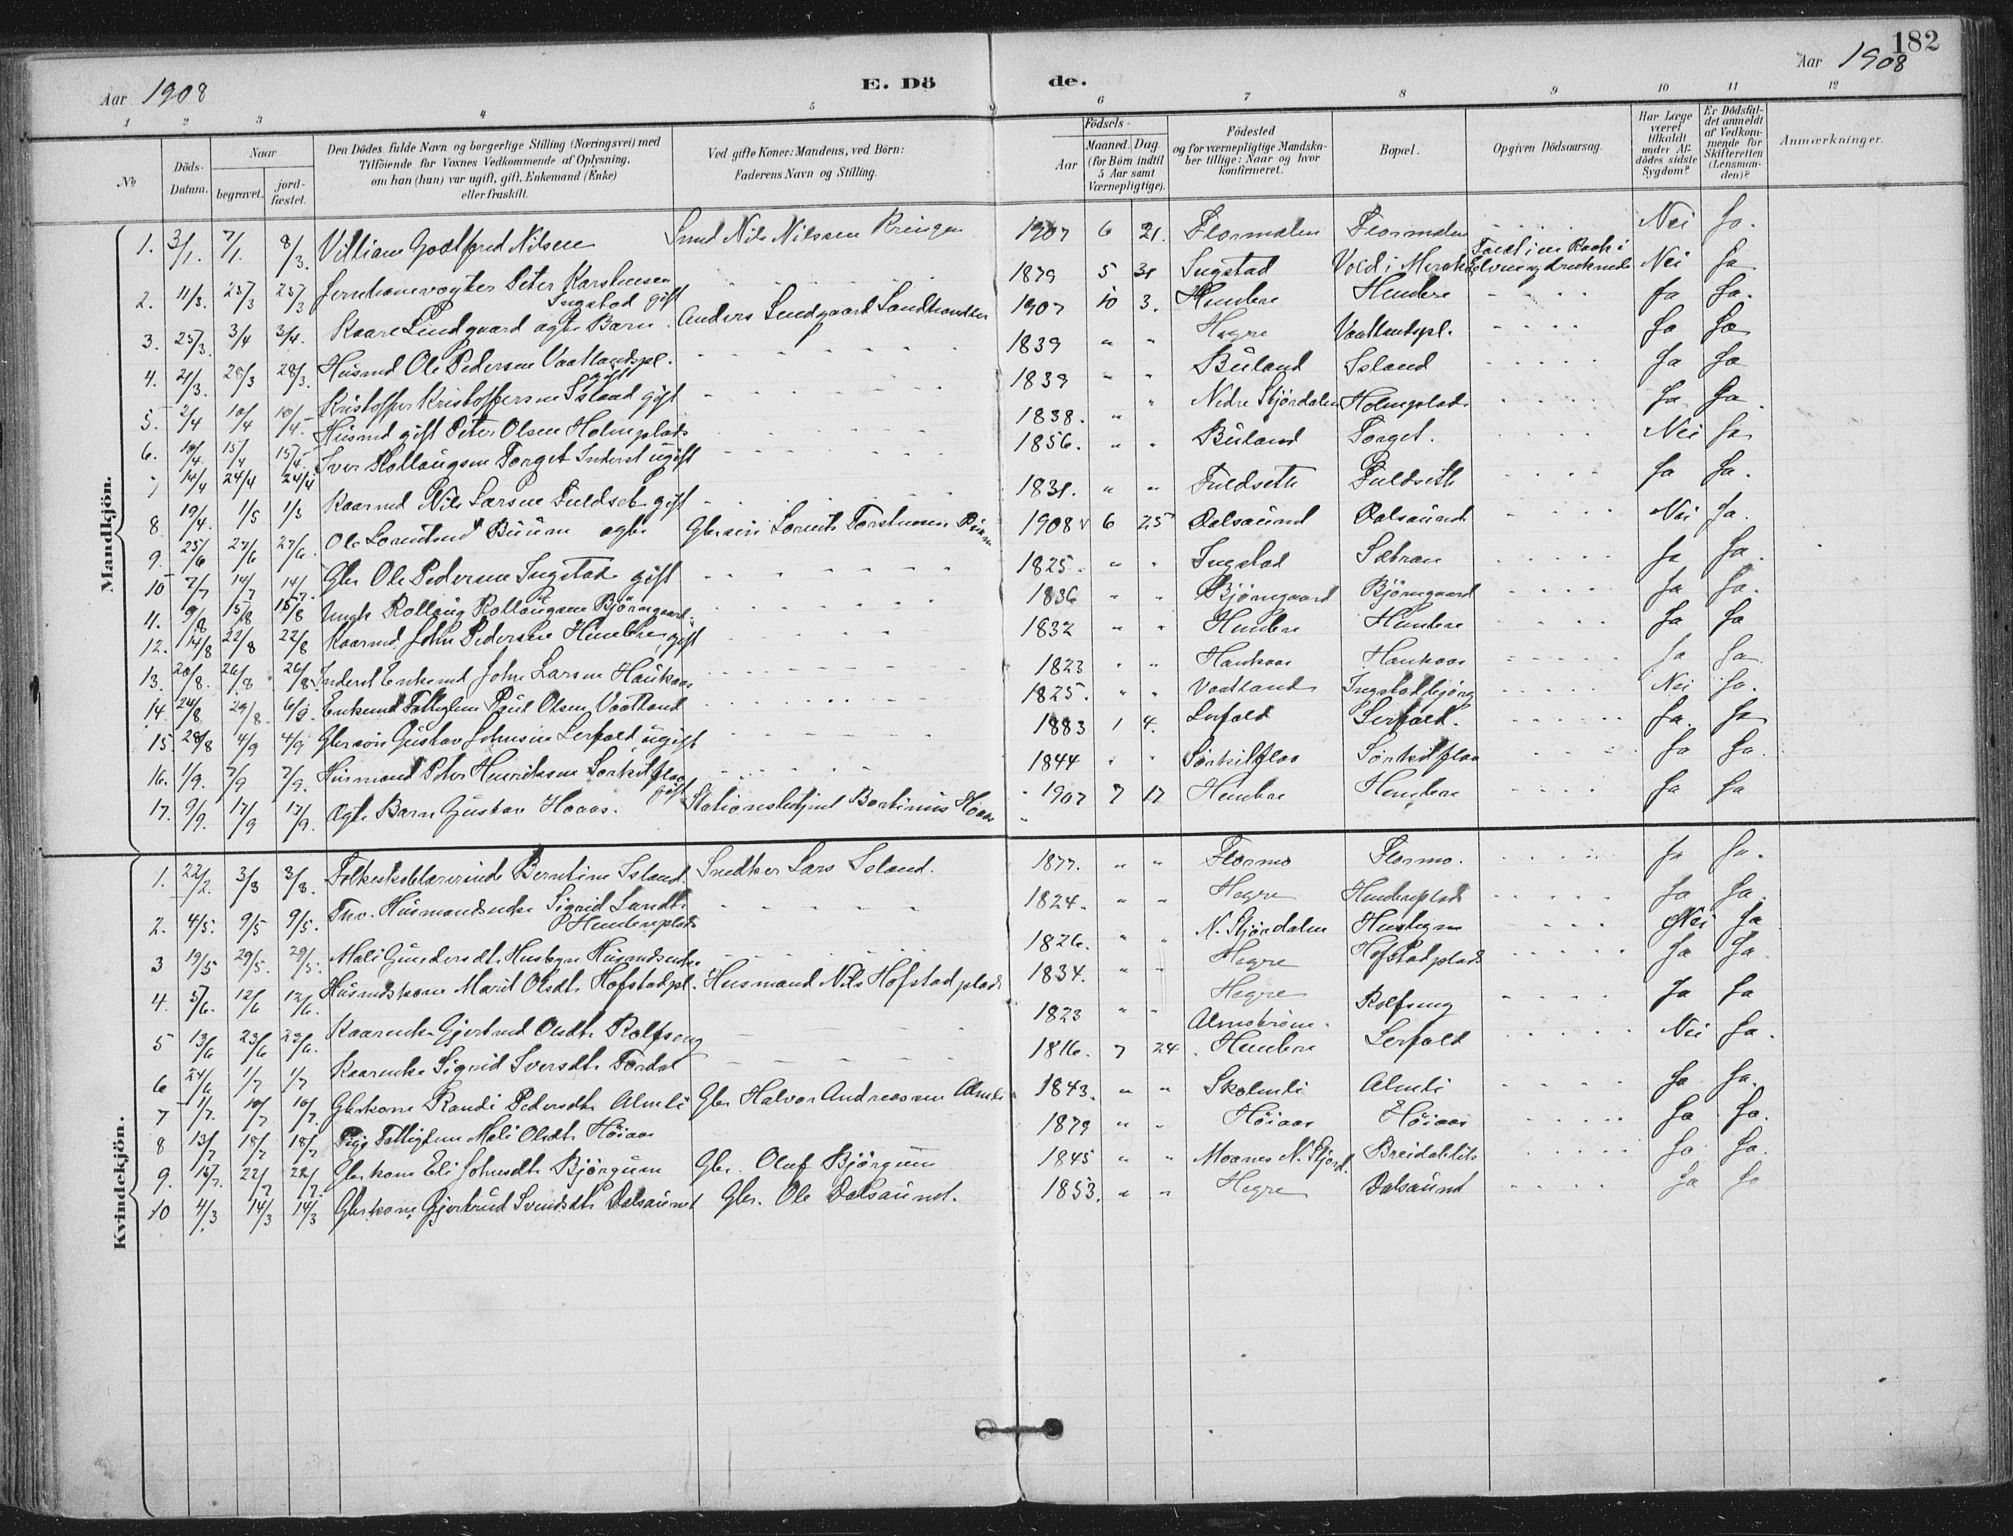 182
Aar 1908
E. Dö de.
Aar 1908
1 2 3 4 5 6 7 8 9 10 11 12
No
Döds-Datum.
Naar
begravet.
jord-fæstet.
Den Dödes fulde Navn og borgerlige Stilling (Næringsvei) med
Tilföiende for Voxnes Vedkommende af Oplysning,
om han (hun) var ugift, gift, Enkemand (Enke)
eller fraskilt.
Ved gifte Koner: Mandens, ved Börn:
Faderens Navn og Stilling.
Födsels-
Aar
Maaned. Dag.
(for Börn indtil
5 Aar samt
Værnepligtige).
Födested
og for værnepligtige Mandska-
ber tillige: Naar og hvor
konfirmeret.
Bopæl.
Opgiven Dödsaarsag.
Har Læge
været
tilkaldt
under Af-
dödes sidste
Sygdom?
Er Dödsfal-
det anmeldt
af Vedkom-
mende for
Skifteretten
(Lensman-
den)?
Anmærkninger.
Mandkjön.
1. 3/1. 7/1. 8/3. Villiam Godtfred Nilsen Smed Nils Nilssen Ringen 1907 6 21. Flormælen Flormælen Nei Ja.
2. 11/3. 25/3 25/3 Jernbanevogter Peter Karstensen Ingstad gift 1879 5 31 Ingstad Vold i Nei Ja
3. 25/3. 3/4 3/4. Kaare Lundgaard ægte Barn. Anders Lundgaard Landhandler 1907 10 3. Hembre Hembre Ja Ja.
4. 21/3. 28/3 28/3. Husmd Ole Pedersen Vaatlandspl. gift 1839 " " Hegre Vaatlandspl. Ja Ja
5. 2/4 10/4 10/4. Kristoffer Kristoffersen Island gift 1839 " " Büland Island Ja Ja
6. 10/4 15/4 15/4. Husmd gift Peter Olsen Holmsplads 1838. " " Nedre Stjördalen Holmsplads Ja Ja
7 14/4 24/4 24/4 Iver Rollaugsen Torget Inderst ugift 1856. " " Büland Torget. Nei Ja
8. 19/4. 1/5 1/5 Kaarmd Nils Larsen Fuldset gift 1831. " " Fuldseth Fuldseth Ja Ja.
9. 25/6 27/6 27/6. Ole Lorentsen ægte Gbr 1908 6 25 Dalsaünd Dalsaünd Nei Ja.
10 7/7 14/7 14/7. Gbr Ole Pedersen Ingstad gift 1825. " " Ingstad Sætran Ja Ja.
11. 9/8 15/8 15/8 Ungk Rollaug Rollaugsen Björngaard. 1836 " " Björngaard Björngaard Ja Ja.
12. 14/8 22/8 22/8 Kaarmd John Pedersen Hembre gift 1832 " " Hembre Hembre Ja Ja
13. 20/8. 26/8 26/8. Inderst Enkemd John Larsen Haukaas 1823 " " Haukaas Haukaas Ja Ja
14. 24/8 29/8. 6/9. Enkemd Fattiglem Paul Olsen Vaatland 1825. " " Vaatland Ingstadbjörg Nei Ja.
15 28/8 4/9 4/9 Gbr sön Gustav Johnsen Lerfald ugift 1883 1 4. Lerfald Lerfald. Ja. Ja
16. 1/9. 7/9 7/9. Husmand Peter Henriksen Sörkilflaa gift 1844 " " Sörkilflaa Sörkilflaa Ja Ja.
17. 9/9. 17/9 17/9. ægte Barn Gustav Haaas. Stationsbetjent 1907 7 17 Hembre Hembre Ja Ja
Kvindekjön.
1. 22/2. 3/3 3/3. Folkeskolelærerinde Berntine Island. Snedker Lars Island. 1877. " " Flormo Flormo. Ja Ja.
2. 4/5. 9/5 9/5. Husmandsenke Sigrid Larsdt. Hembreplads 1824. " " Hegre Hembreplads Ja Ja.
3 19/5 29/5. 29/5. Mali Gundersdt. Husbyn Husmdsenke 1826. " " N. Stjördalen Husbyn Nei Ja
4. 5/6. 12/6 12/6. Husmdskone Marit Olsdt. Hofstadpl. Husmand Nils Hofstadplads 1834. " " Hegre Hofstadplads Ja Ja.
5 13/6 23/6 23/6. Kaarenke Gjertrud Olsdt. Rolfseng 1823 " " Hegre Rolfseng Ja Ja
6 24/6 1/7 1/7 Kaarenke Sigrid Iversdt. 1816. 7 24 Hembre Lerfald Nei Ja.
7 1/7. 10/7 10/7. Gbrkone Randi Pedersdt. Almli Gbr Halvor Andreassen Almli 1843. " " Skolmli Almli Ja Ja.
8 13/7 18/7 18/7 Pige Fattiglem Mali Olsdt. Höiaas 1879 " " Höiaas Höiaas Ja Ja.
9. 15/7. 22/7 22/7. Gbrkone Eli Johnsdt. Björgum Gbr. Oluf Björgum 1845 " " N. Stjørd. Ja Ja.
10 4/3 14/3 14/3 Gbrkone Gjertrud Svendsdt. Dalsaünd Gbr. Ole Dalsaünd. 1853. " " Hegre Dalsaünd Ja Ja